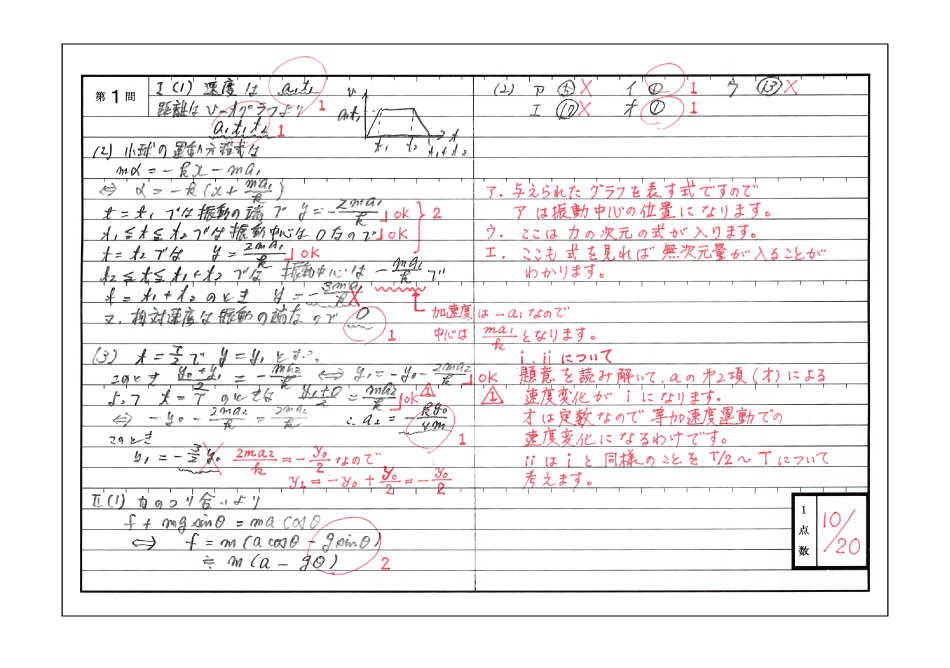 第1問
I (1) 速度は a₁t₁ 1
距離は v-tグラフより
a₁t₁t₂ 1
v a₁t₁ t₁ t₂ t₁+t₂ t
(2) 小球の運動方程式は
mα = -kx - ma₁
⇔ α = -k(x + ma₁/k)
t = t₁ では振動の端で y = -2ma₁/k ok
t₁ ≦ t ≦ t₂ では振動中心は 0 なので ok 2
t = t₂ では y = 2ma₁/k ok
t₂ ≦ t ≦ t₁+t₂ では 振動中心は -ma₁/k で
t = t₁+t₂ のとき y = -3ma₁/k ×
又、相対速度は振動の端なので 0 1
加速度は -a₁なので
中心は ma₁/k となります。
(3) t = T/2 で y = y₁ とすると、
このとき (y₀+y₁)/2 = -ma₂/k ⇔ y₁ = -y₀ - 2ma₂/k ok
よって t = T のときは (y₁+0)/2 = ma₂/k ok
⇔ -y₀ - 2ma₂/k = 2ma₂/k ∴ a₂ = -ky₀/4m 1
このとき
y₁ = -3/2 y₀ × 2ma₂/k = -y₀/2 なので
y₁ = -y₀ + y₀/2 = -y₀/2
II (1) 力のつり合いより
f + mg sinθ = ma cosθ
⇔ f = m(a cosθ - g sinθ)
≒ m(a - gθ) 2
(2) ア ⑤ × イ ① 1 ウ ⑬ ×
エ ⑩ × オ ① 1
ア. 与えられたグラフを表す式ですので
アは振動中心の位置になります。
ウ. ここは力の次元の式が入ります。
エ. ここも式を見れば無次元量が入ることが
わかります。
i, ii について
題意を読み解いて、aの第2項(オ)による
速度変化が i になります。
オは定数なので等加速度運動での
速度変化になるわけです。
ii は i と同様のことを T/2 〜 T について
考えます。
1点数 10/20